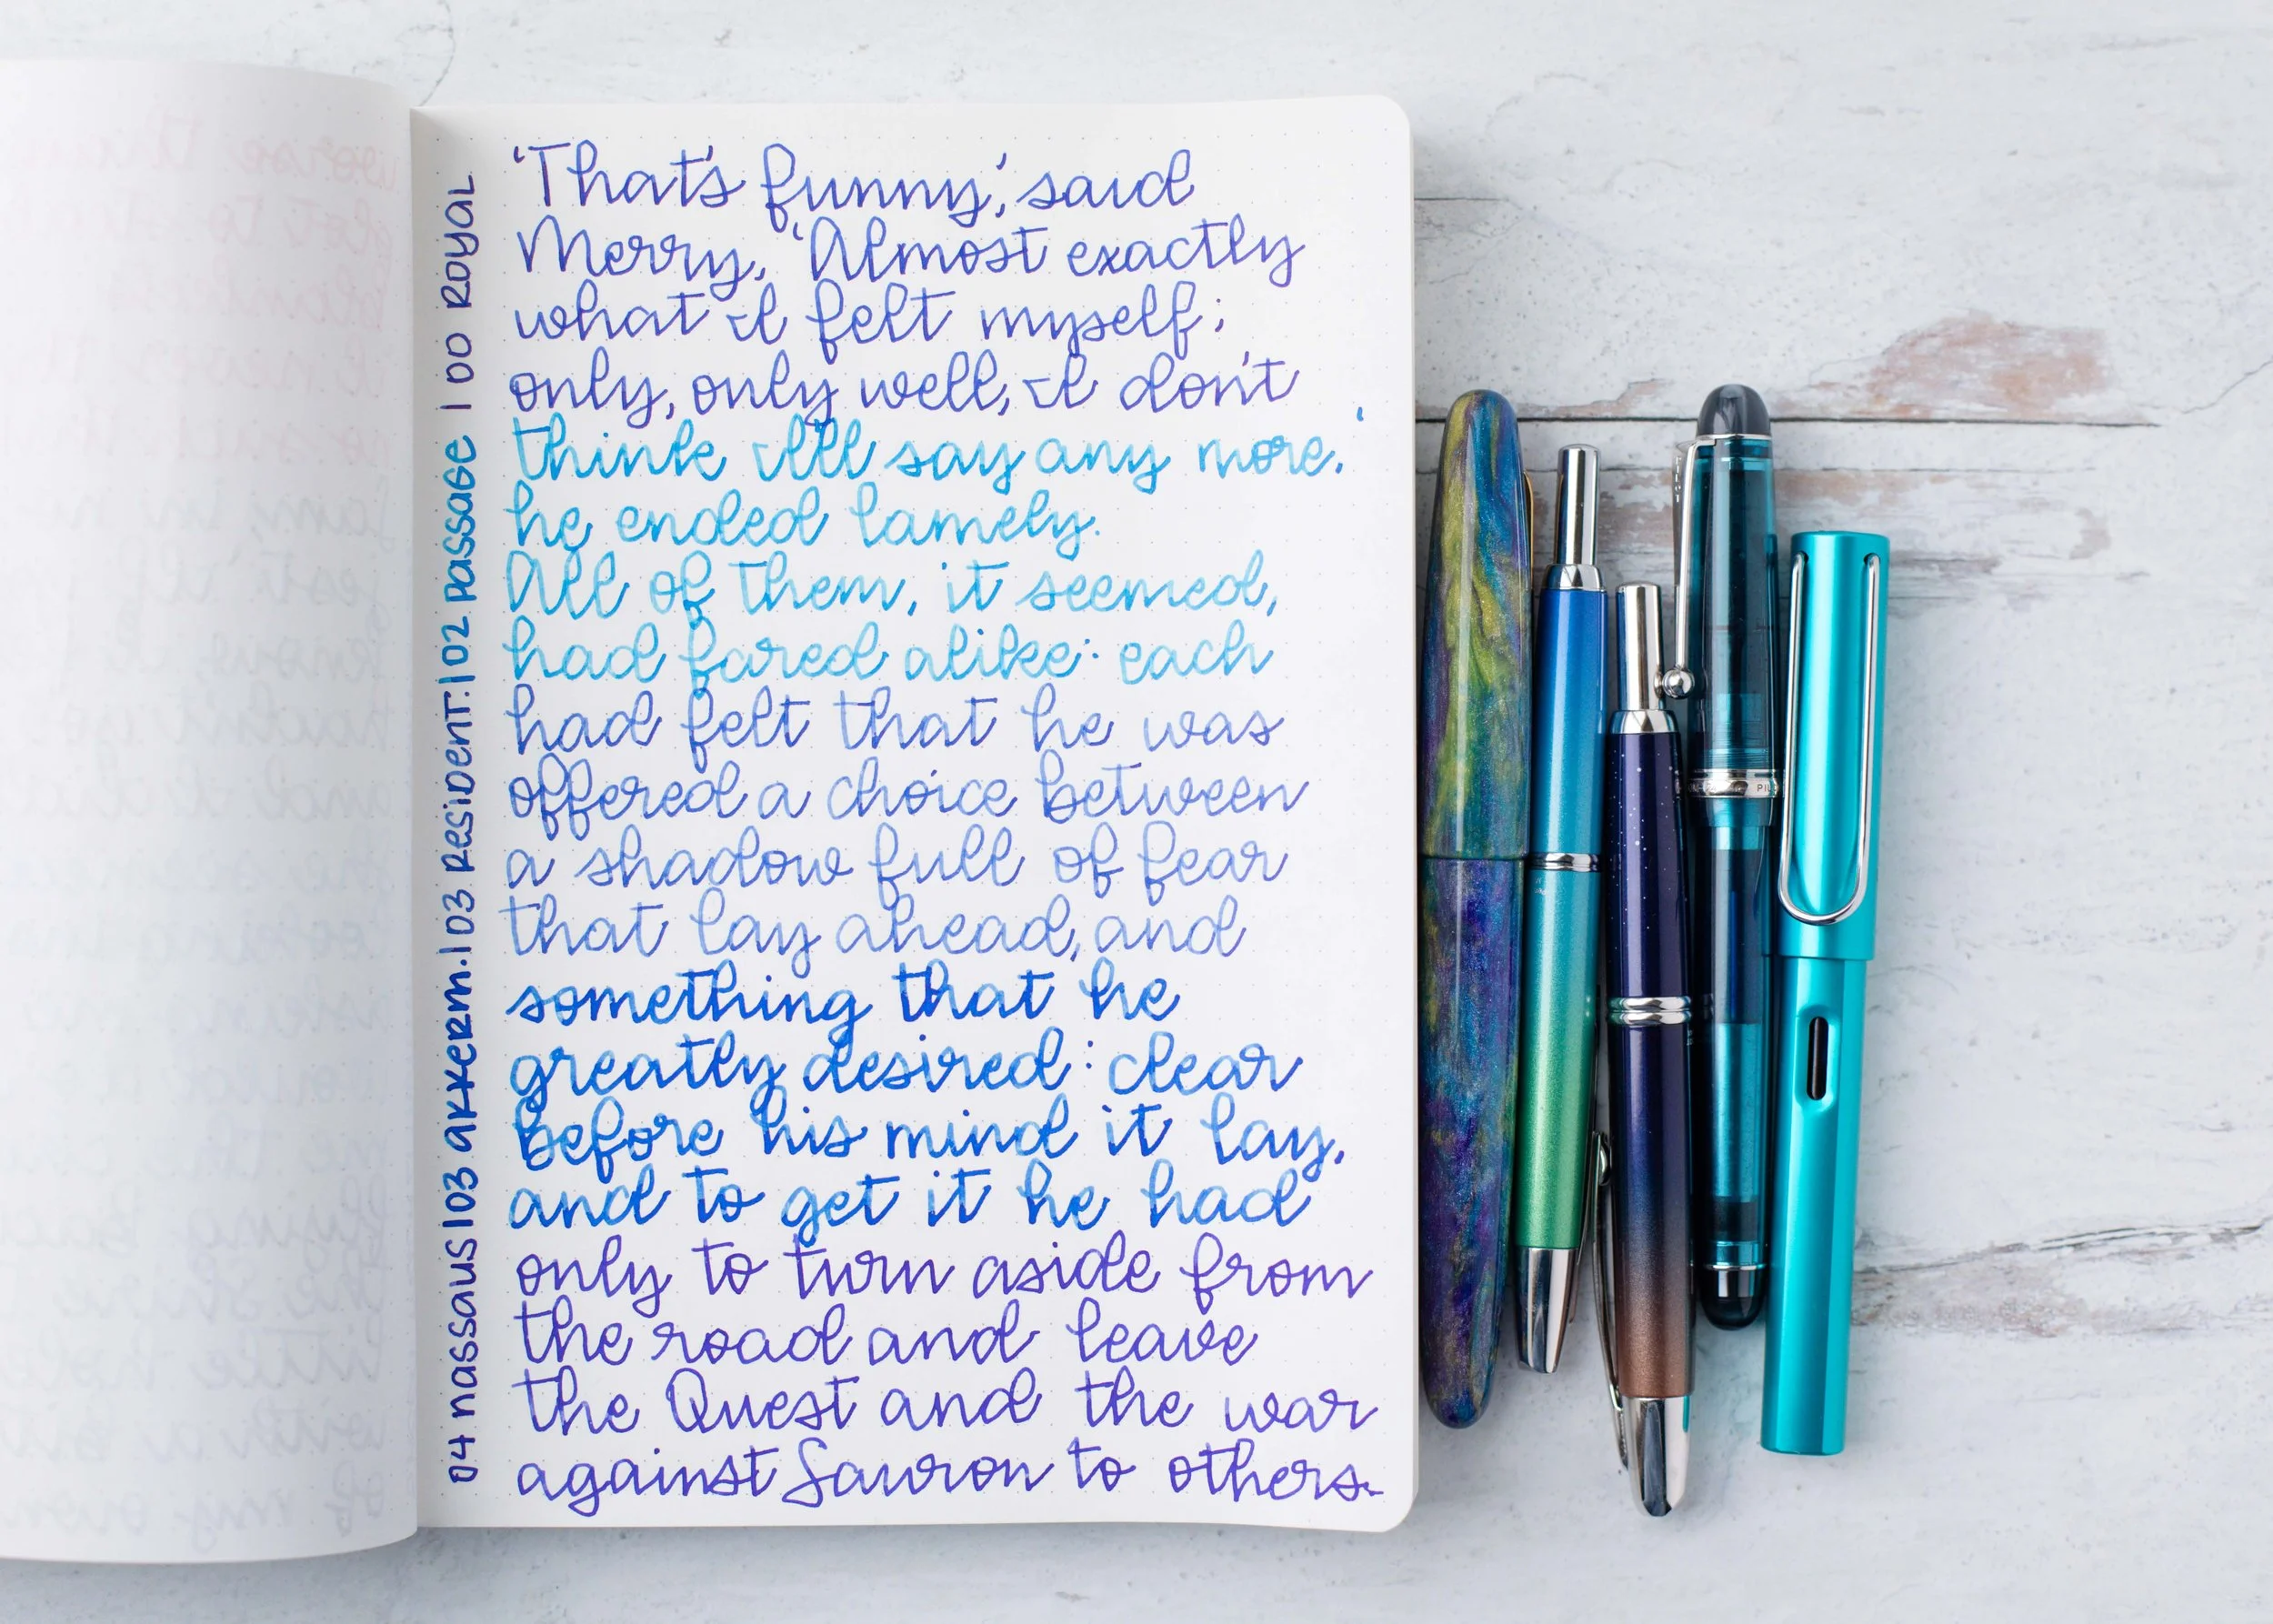 'That's funny,' said
Merry. 'Almost exactly
what I felt myself;
only, only well, I don't
think I'll say any more.'
he ended lamely.
All of them, it seemed,
had fared alike: each
had felt that he was
offered a choice between
a shadow full of fear
that lay ahead, and
something that he
greatly desired: clear
before his mind it lay,
and to get it he had
only to turn aside from
the road and leave
the Quest and the war
against Sauron to others.
04 nassaus | 03 akkerm. | 03 resident. | 02 passage | 00 royal